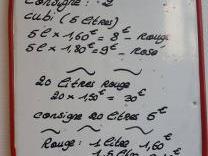 Consigne : 2
Cubi (5 litres)
5l x 1,60€ = 8€ - Rouge
5l x 1,80€ = 9€ - Rosé
20 litres Rouge
20 x 1,50€ = 30€
consigne 20 litres 5€
Rouge : 1 litre 1,60€
1,5 litre